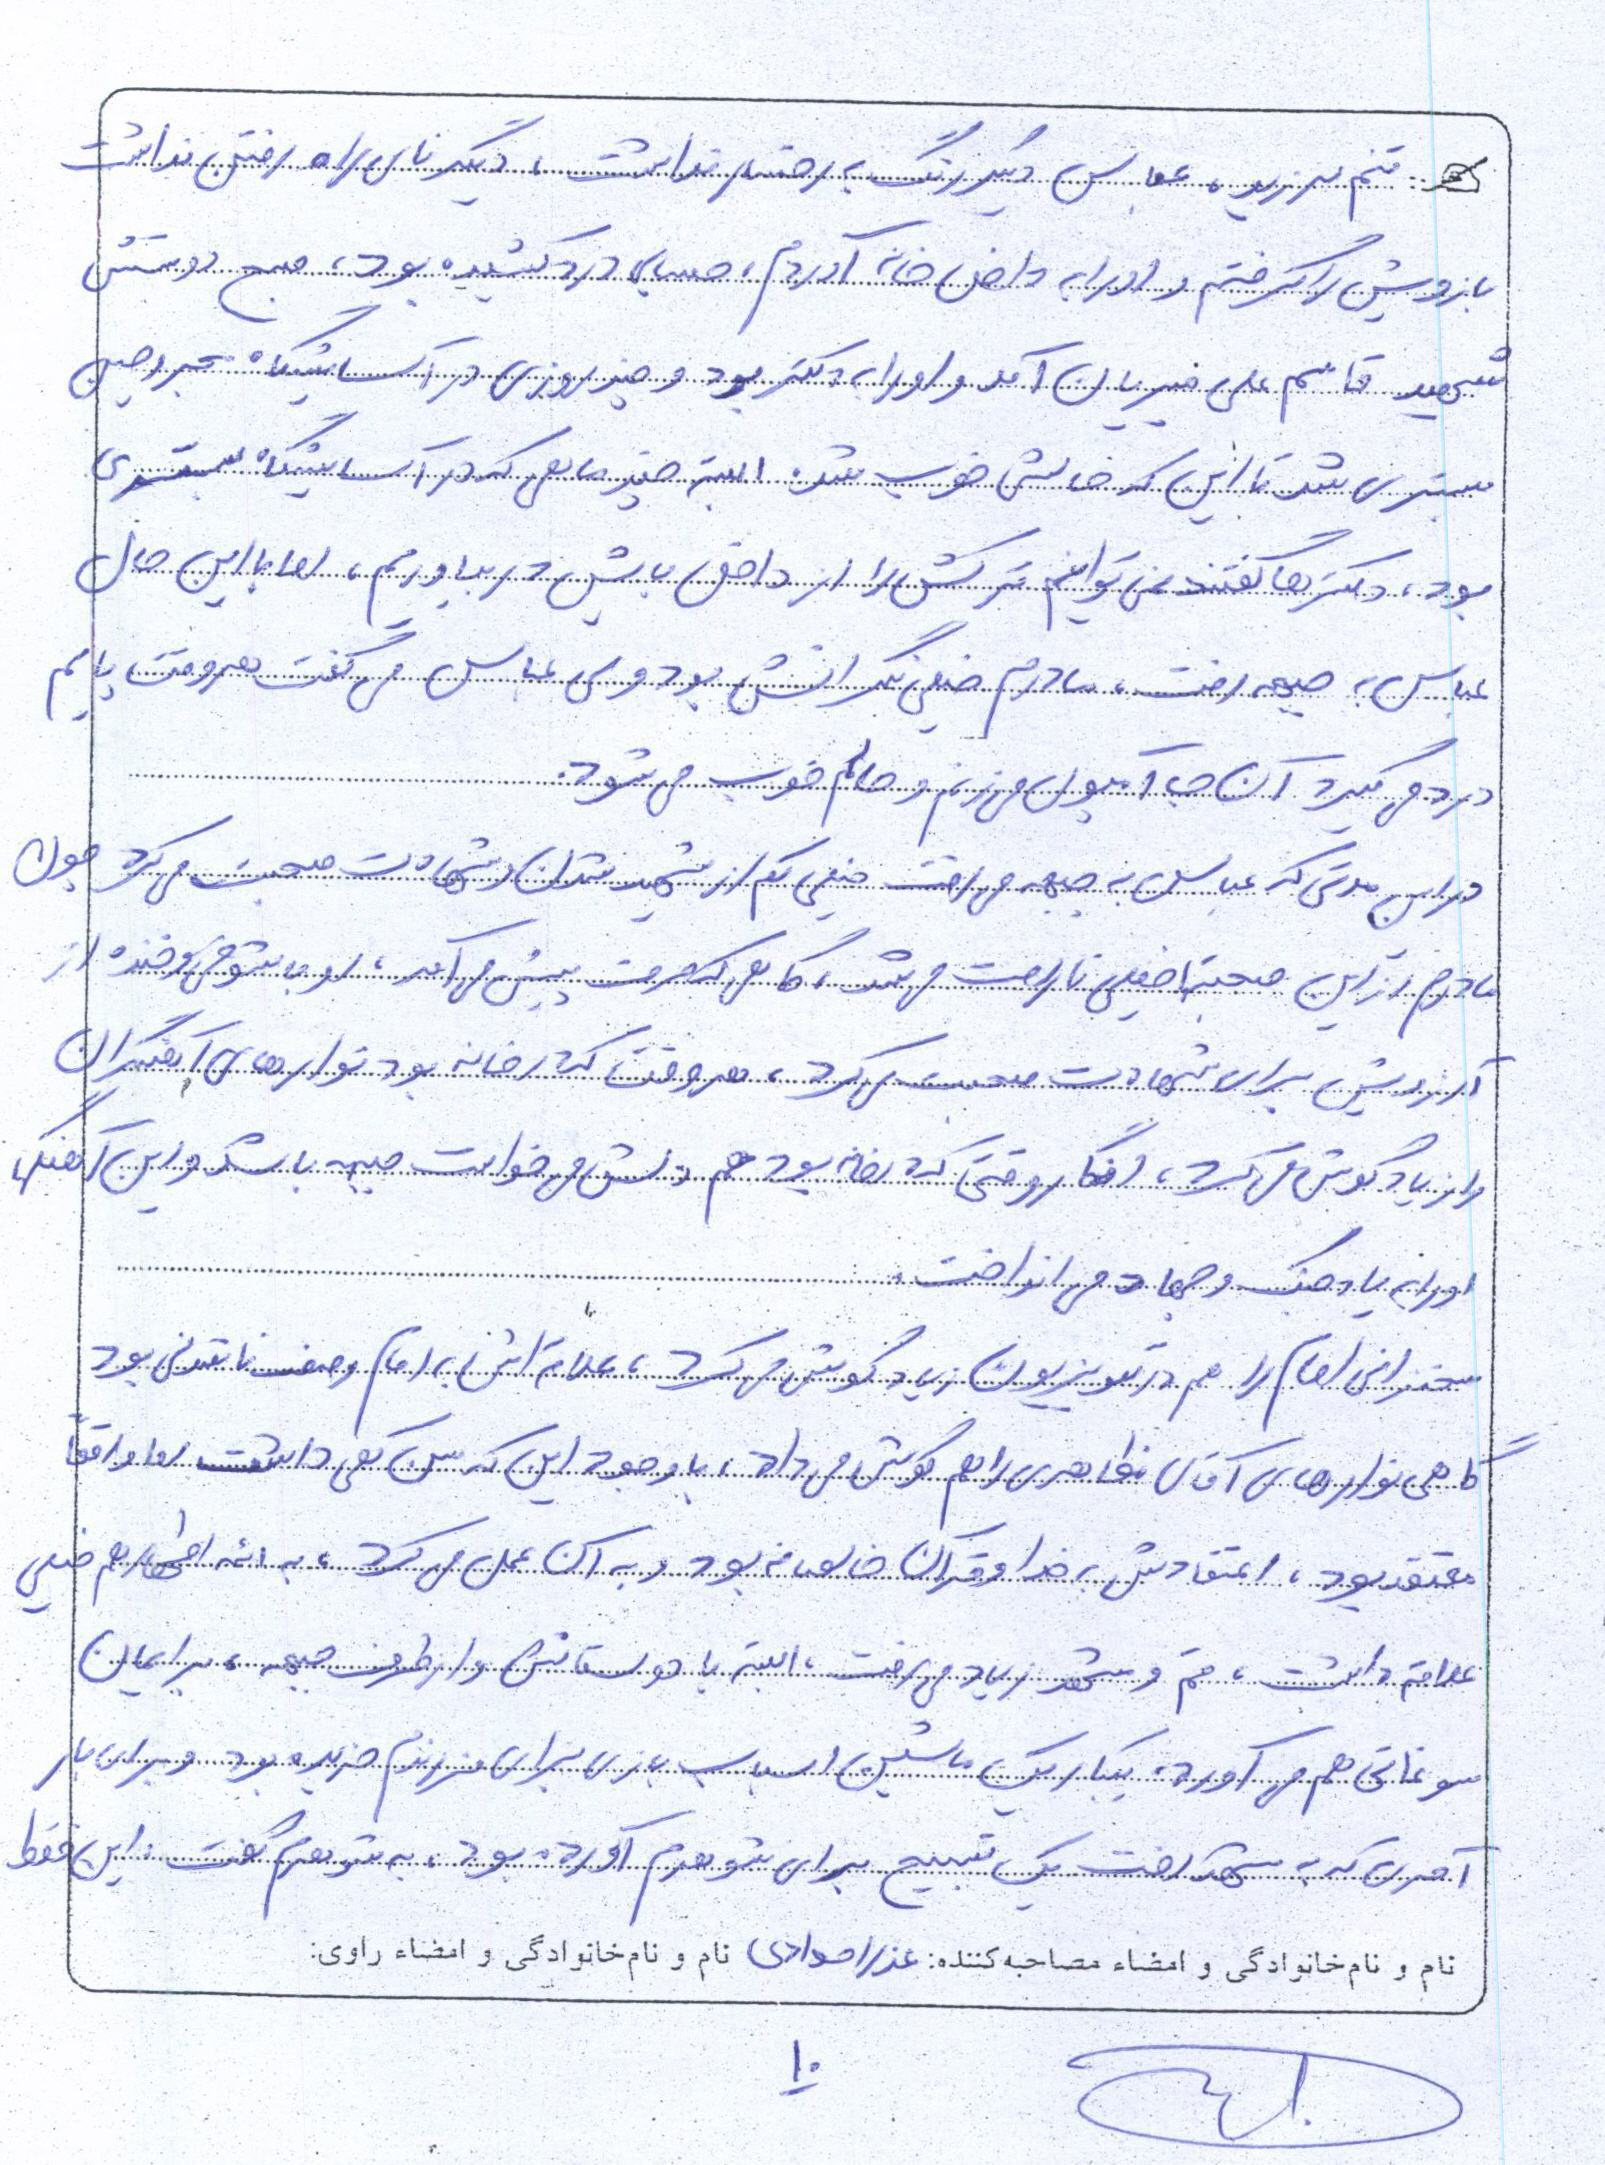 تنم می‌لرزید، عباس دیگر رنگ به رخسار نداشت، دیگر نای راه رفتن نداشت
بازویش را گرفتم و او را به داخل خانه آوردم، حسابی درد کشیده بود، صبح دوستش
شهید قاسم علی خیریان آمد و او را به دکتر برد و چند روزی در آسایشگاه
بستری شد تا این که حالش خوب شد. البته چند ماهی که در آسایشگاه بستری
بود، دکترها گفتند نمی‌توانیم ترکش را از داخل پایش در بیاوریم، اما با این حال
عباس به جبهه رفت، مادرم خیلی نگرانش بود ولی عباس می‌گفت هر وقت پایم
درد می‌گیرد آن جا آمپول می‌زنم و حالم خوب می‌شود.
در این مدتی که عباس به جبهه می‌رفت خیلی کم از شهید شدن و شهادت صحبت می‌کرد چون
مادرم از این صحبتها خیلی ناراحت می‌شد، گاهی که فرصت پیش می‌آمد، او با شوخی و خنده از
آرزویش برای شهادت صحبت می‌کرد، هر وقت که در خانه بود نوارهای آهنگران
را زیاد گوش می‌کرد، انگار وقتی که در خانه بود هم دلش می‌خواست جبهه باشد و این آهنگها
او را به یاد جنگ و جهاد می‌انداخت.
سخنرانی امام را هم در تلویزیون زیاد گوش می‌کرد، علاقه اش به امام وصف ناشدنی بود
گاهی نوارهای آقای مظاهری را هم گوش می‌داد، با وجود این که سن کمی داشت اما واقعاً
معتقد بود، اعتقادش به خدا و قرآن خالصانه بود و به آن عمل می‌کرد، به ائمه اطهار هم خیلی
علاقه داشت، قم و مشهد زیاد می‌رفت، البته با دوستانش و از طرف جبهه، برایمان
سوغاتی هم می‌آورد. یکبار یک ماشین اسباب بازی برای فرزندم خریده بود و برای بار
آخری که به مشهد رفت یک تسبیح برای شوهرم آورده بود، به شوهرم گفت: این فقط
نام و نام‌خانوادگی و امضاء مصاحبه‌کننده: عذرا جوادی نام و نام‌خانوادگی و امضاء راوی:
۱۰